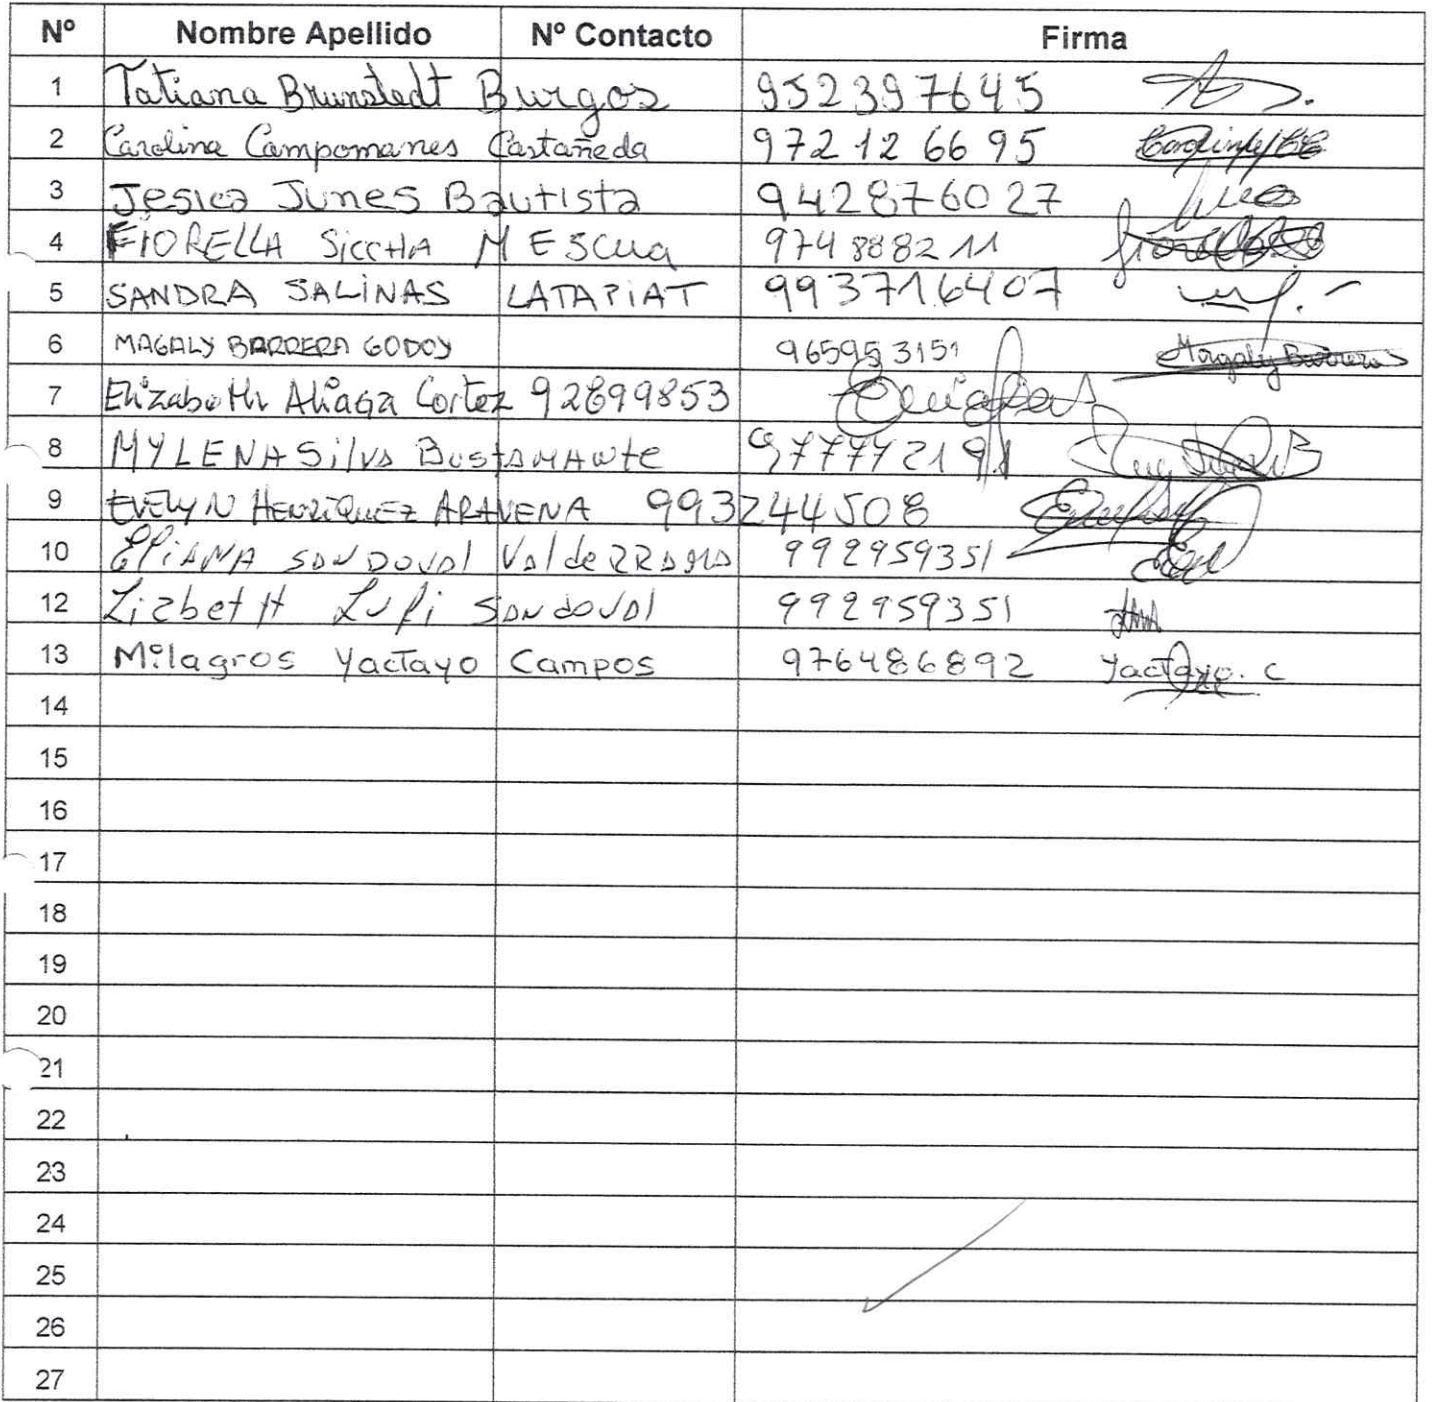 Nº Nombre Apellido Nº Contacto Firma
1 Tatiana Brunstedt Burgos 952397645
2 Carolina Campomanes Castañeda 972126695
3 Jesica Junes Bautista 942876027
4 FIORELLA SiccHA MEScua 974888211
5 SANDRA SALiNAS LATAPiAT 9937716407
6 MAGALY BARRERA GODOY 965953151 Magaly Barrera
7 Elizabeth Aliaga Cortez 92899853
8 MYLENA Silva BustaMAnte
9 EVELYN HENRiQuEZ ARAVENA 993244508
10 EliANA SANDOVAl ValdeRRAMA 992959351
12 LizbetH Lufi SANdoVAl 992959351
13 Milagros Yactayo Campos 976486892 Yactayo. C
14
15
16
17
18
19
20
21
22
23
24
25
26
27